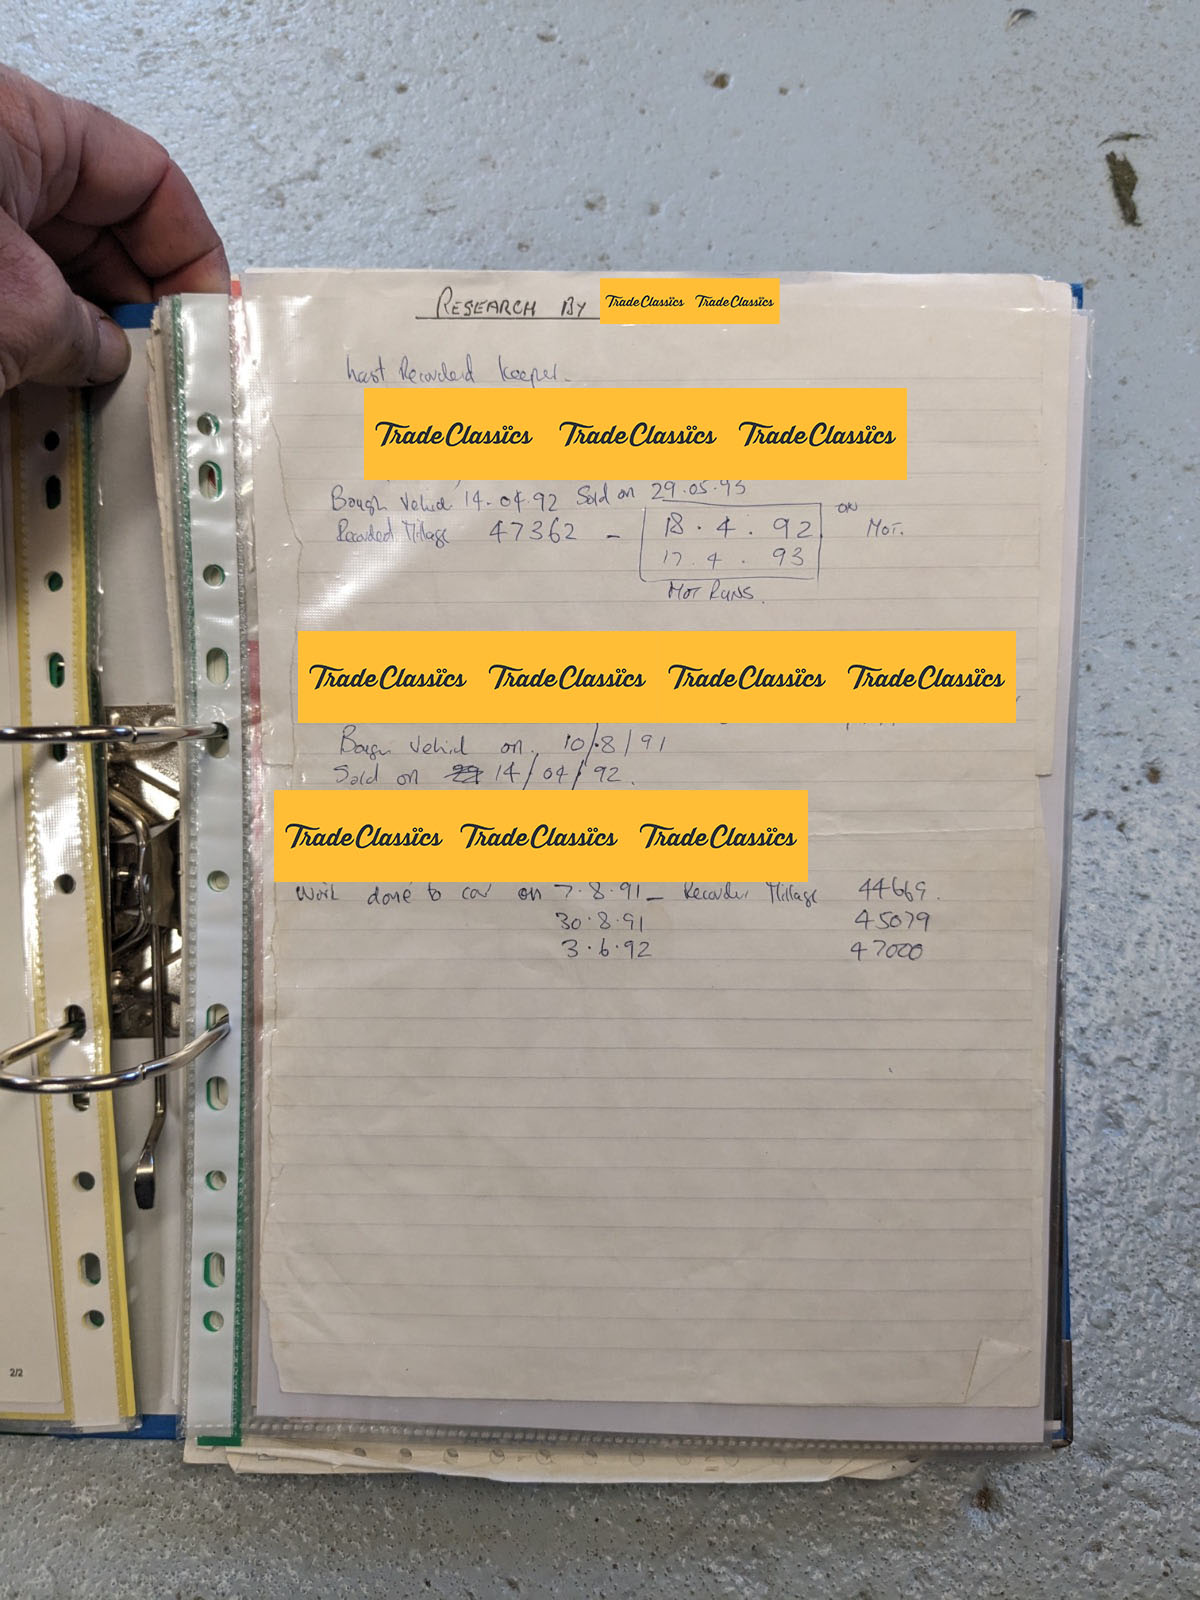 RESEARCH BY TradeClassics TradeClassics
Last Recorded keeper.
TradeClassics TradeClassics TradeClassics
Bough Vehicle 14.04.92 Sold on 29.05.95
Recorded Millage 47362 - 18.4.92 ON MOT.
17.4.93
MOT RUNS.
TradeClassics TradeClassics TradeClassics TradeClassics
Bough Vehicl on. 10/8/91
Sold on 14/04/92.
TradeClassics TradeClassics TradeClassics
Work done to car on 7.8.91 - Recorder Millage 44669.
30.8.91 45079
3.6.92 47000
2/2